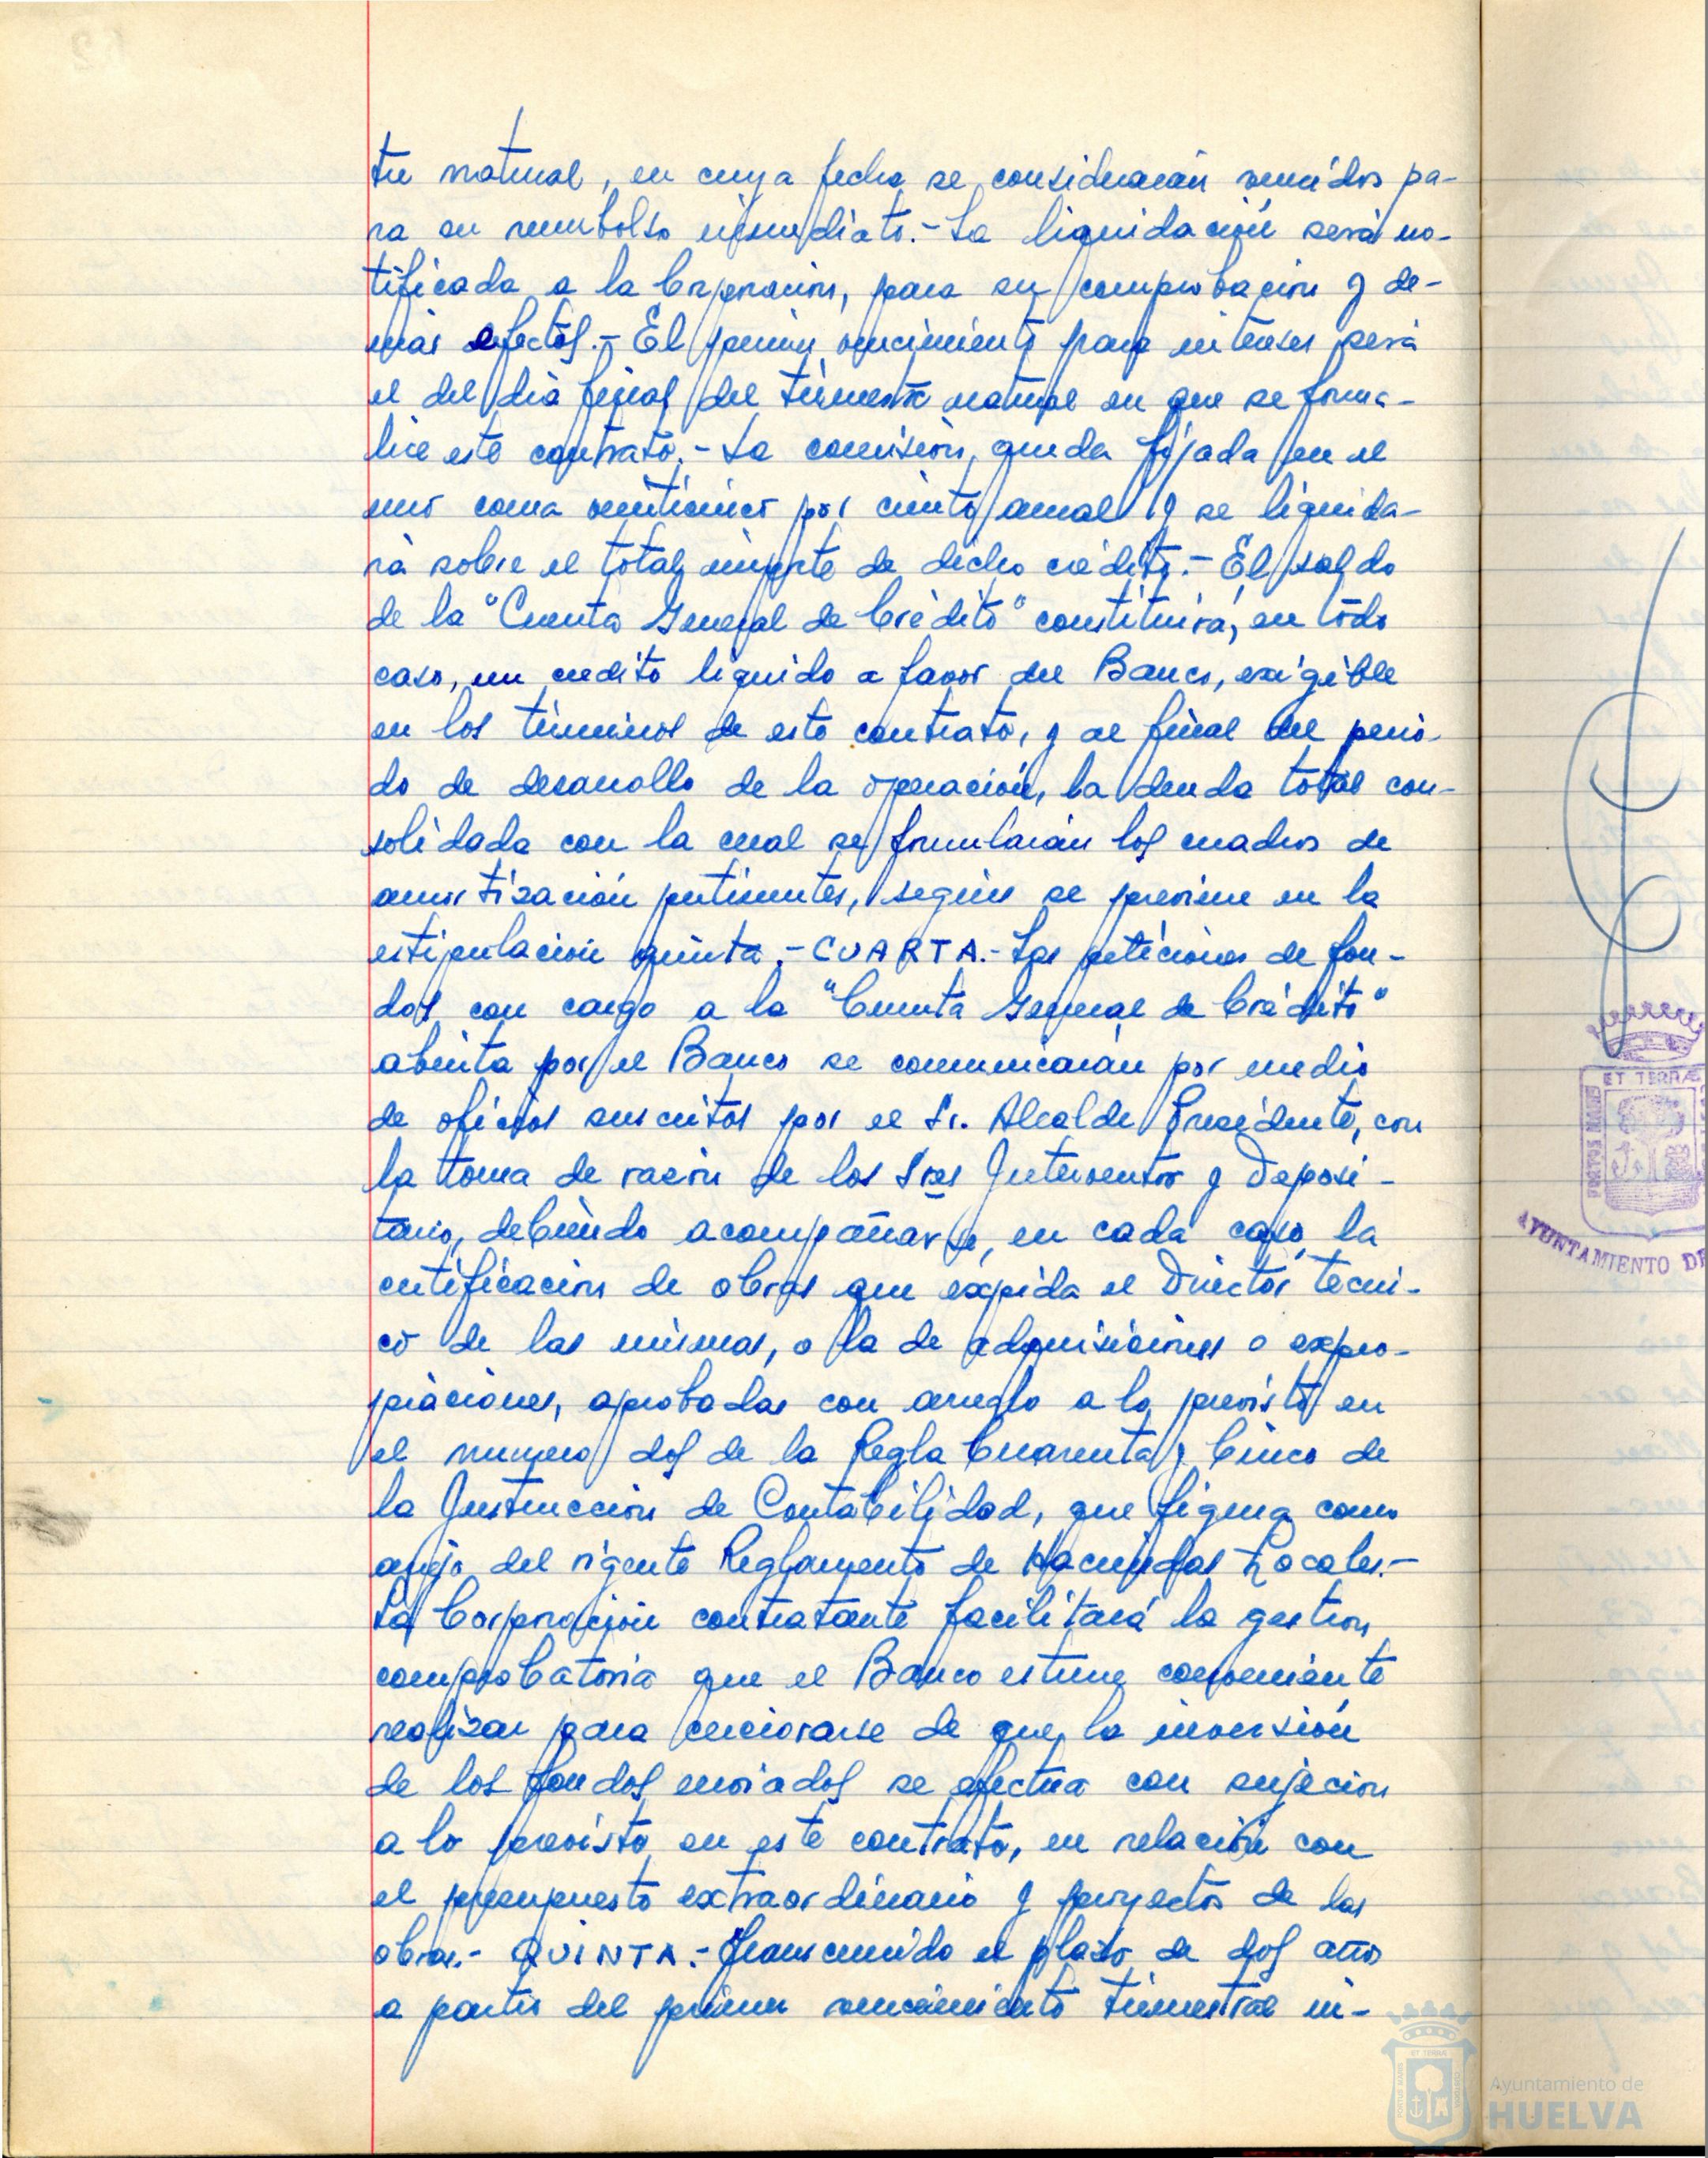 tre natural, en cuya fecha se considerarán vencidos pa-
ra su reembolso inmediato.- La liquidación será no-
tificada a la Corporación, para su comprobación y de-
más efectos.- El primer vencimiento para intereses será
el del día final del trimestre natural en que se forma-
lice este contrato.- La comisión, queda fijada en el
uno coma veinticinco por ciento anual y se liquida-
rá sobre el total importe de dicho crédito.- El saldo
de la "Cuenta General de Crédito" constituirá, en todo
caso, un credito liquido a favor del Banco, exigible
en los términos de este contrato, y al final del perio-
do de desarrollo de la operación, la deuda total con-
solidada con la cual se formularán los cuadros de
amortización pertinentes, según se previene en la
estipulación quinta.- CUARTA.- Las peticiones de fon-
dos con cargo a la "Cuenta General de Crédito"
abierta por el Banco se comunicarán por medio
de oficios suscritos por el Sr. Alcalde Presidente, con
la toma de razón de los Sres Interventor y Deposi-
tario, debiendo acompañarse, en cada caso, la
certificación de obras que expida el Director tecni-
co de las mismas, o la de adquisiciones o expro-
piaciones, aprobadas con arreglo a lo previsto en
el numero dos de la Regla Cuarenta y Cinco de
la Instrucción de Contabilidad, que figura como
anejo del vigente Reglamento de Haciendas Locales.-
La Corporación contratante facilitará la gestion
comprobatoria que el Banco estime conveniente
realizar para cerciorarse de que la inversión
de los fondos enviados se efectua con sujecion
a lo previsto en este contrato, en relación con
el presupuesto extraordinario y proyectos de las
obras.- QUINTA.- Transcurrido el plazo de dos años
a partir del primer vencimiento trimestral in-
ET TERRÆ
PORTUS MARIS
AYUNTAMIENTO DE
Ayuntamiento de
HUELVA